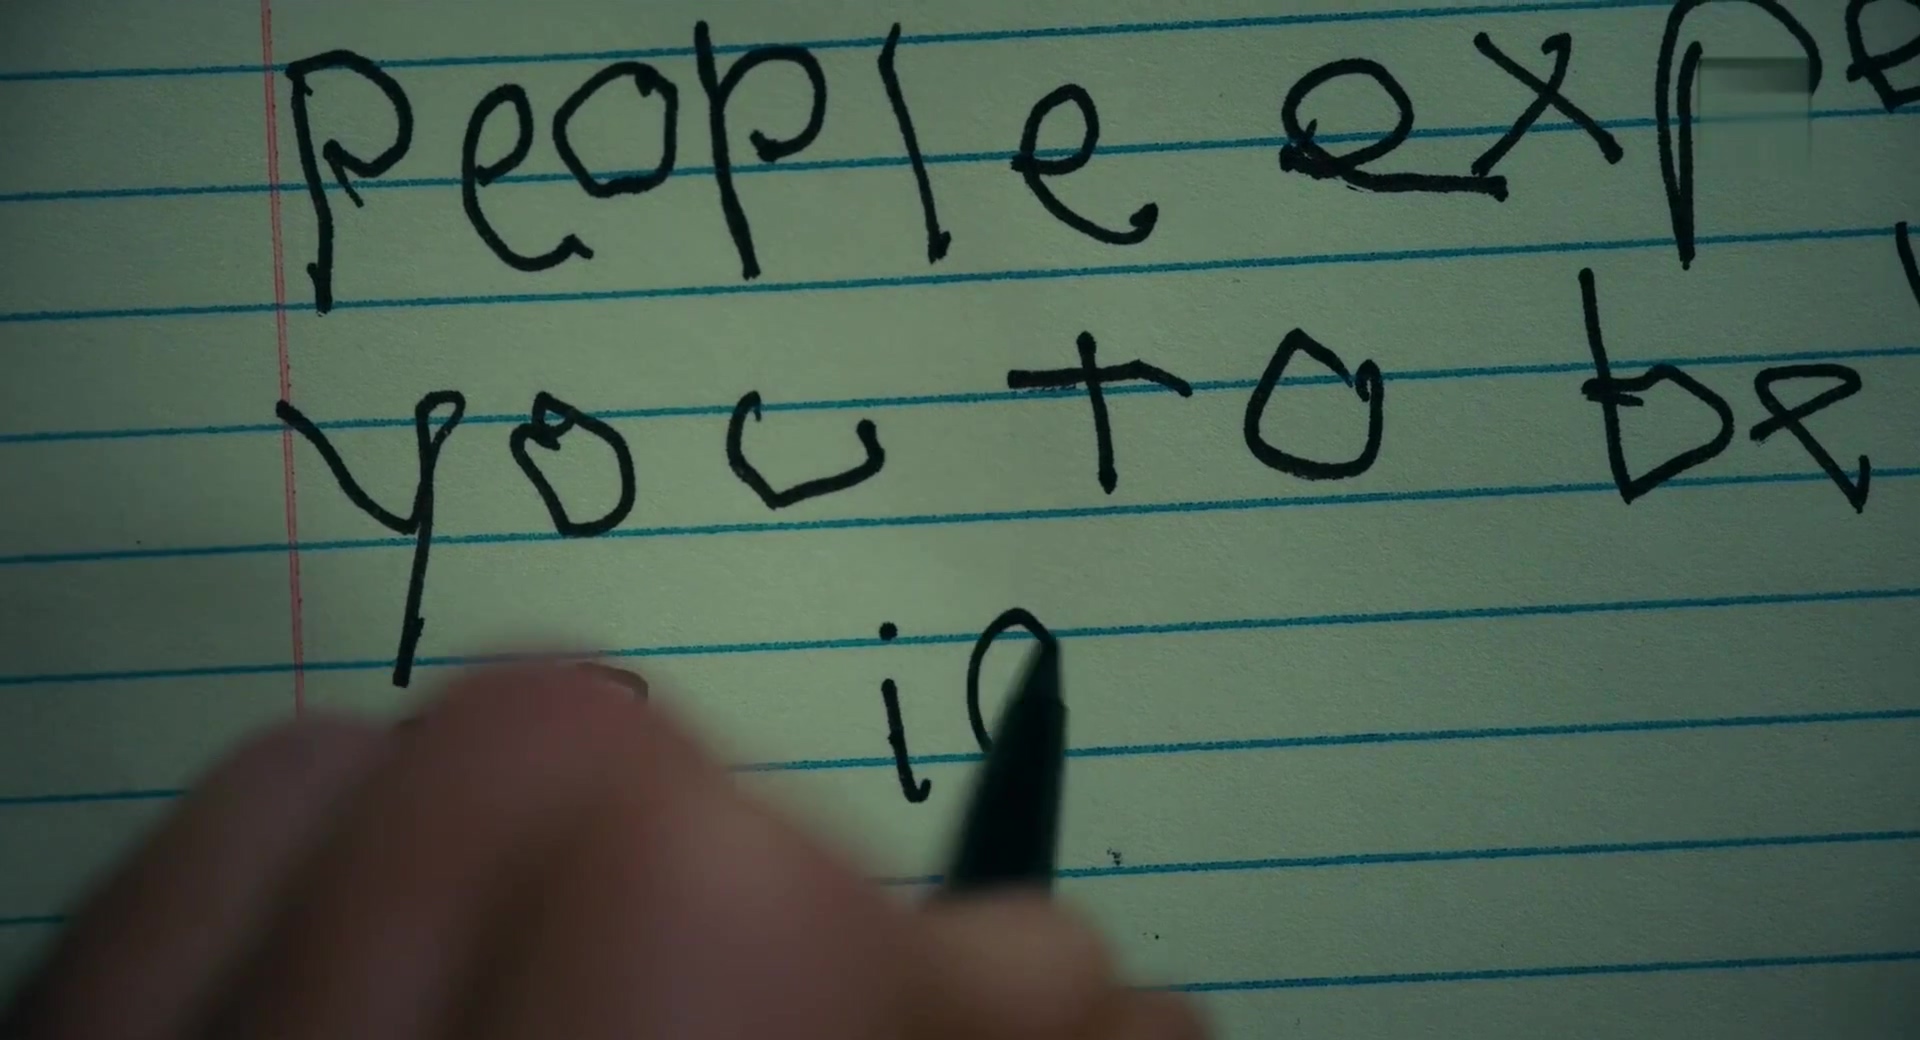 people expe
you to be